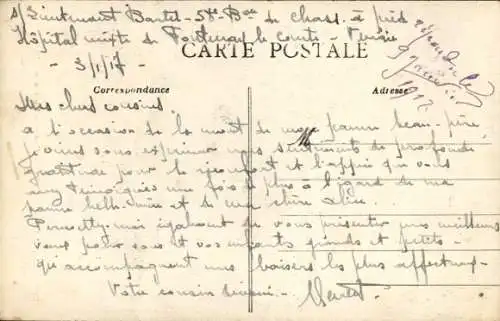 s/Lieutenant Bartel - 5e Bon de chass. à pied
Hôpital mixte de Fontenay le comte - Vendée
- 3/1/17 -
CARTE POSTALE
Répondu le
9 janvier
1917
Correspondance
Adresse
M
Mes chers cousins,
à l'occasion de la mort de mon pauvre beau-père,
je viens vous exprimer nos sentiments de profonde
gratitude pour le réconfort et l'appui que vous
avez témoignés une fois de plus à l'égard de ma
pauvre belle-mère et de ma chère Aline.
Permettez-moi également de vous présenter mes meilleurs
vœux pour vous et vos enfants grands et petits -
qui accompagnent mes baisers les plus affectueux -
Votre cousin dévoué -